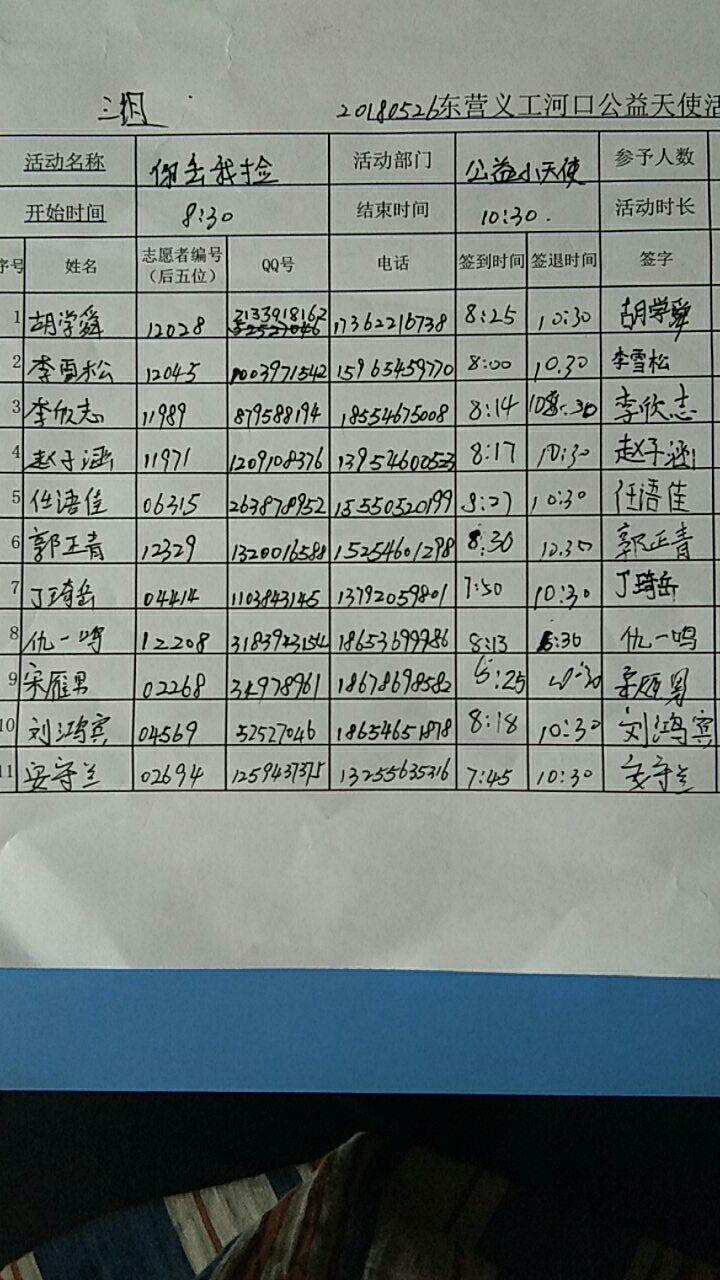 三组 20180526东营义工河口公益天使活
活动名称 你丢我捡 活动部门 公益小天使 参予人数
开始时间 8:30 结束时间 10:30. 活动时长
序号 姓名 志愿者编号（后五位） QQ号 电话 签到时间 签退时间 签字
1 胡学舜 12028 2133918162 17362216738 8:25 10:30 胡学舜
2 李雪松 12045 1003971542 15965459770 8:00 10.30 李雪松
3 李欣志 11989 879588194 18554675008 8:14 李欣志
4 赵子涵 11971 1209108376 13954600523 8:17 10:30 赵子涵
5 任语佳 06315 263878952 15550520199 8:27 10:30 任语佳
6 郭正青 12329 1320016588 15254601298 8:30 10.30 郭正青
7 丁琦岳 04414 1103843145 13792059801 7:50 10:30 丁琦岳
8 仇一鸣 12208 3183943154 18653699986 8:13 仇一鸣
9 宋雁男 02268 18678698582 10:30 宋雁男
10 刘鸿宾 04569 52527046 18654651878 8:18 10:30 刘鸿宾
11 安守兰 02694 1259437375 13255635316 7:45 10:30 安守兰